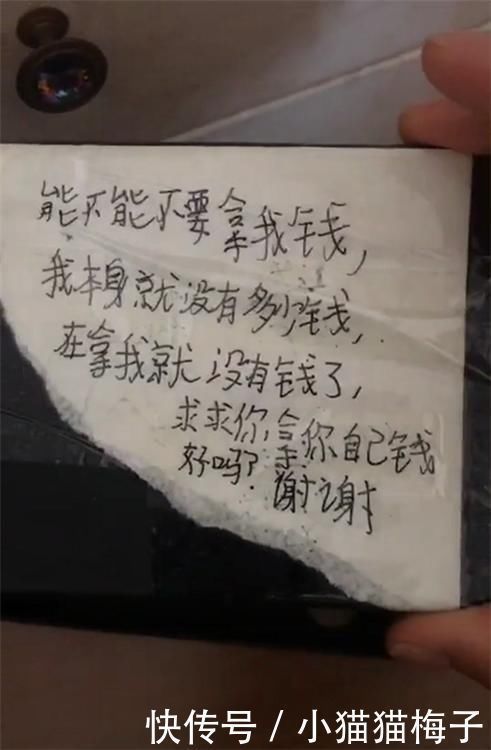 能不能不要拿我钱，
我本身就没有多少钱，
在拿我就没有钱了，
求求你，拿你自己钱
好吗？谢谢
快传号 / 小猫猫梅子